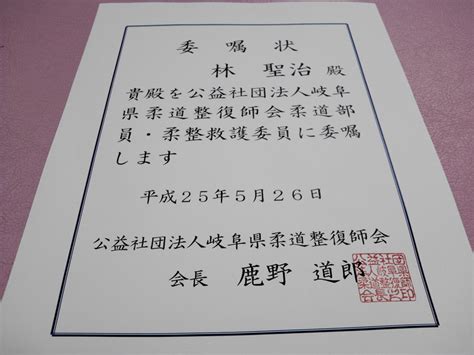 委嘱状
林 聖治 殿
貴殿を公益社団法人岐阜
県柔道整復師会柔道部
員・柔整救護委員に委嘱
します
平成25年5月26日
公益社団法人岐阜県柔道整復師会
会長 鹿野 道郎